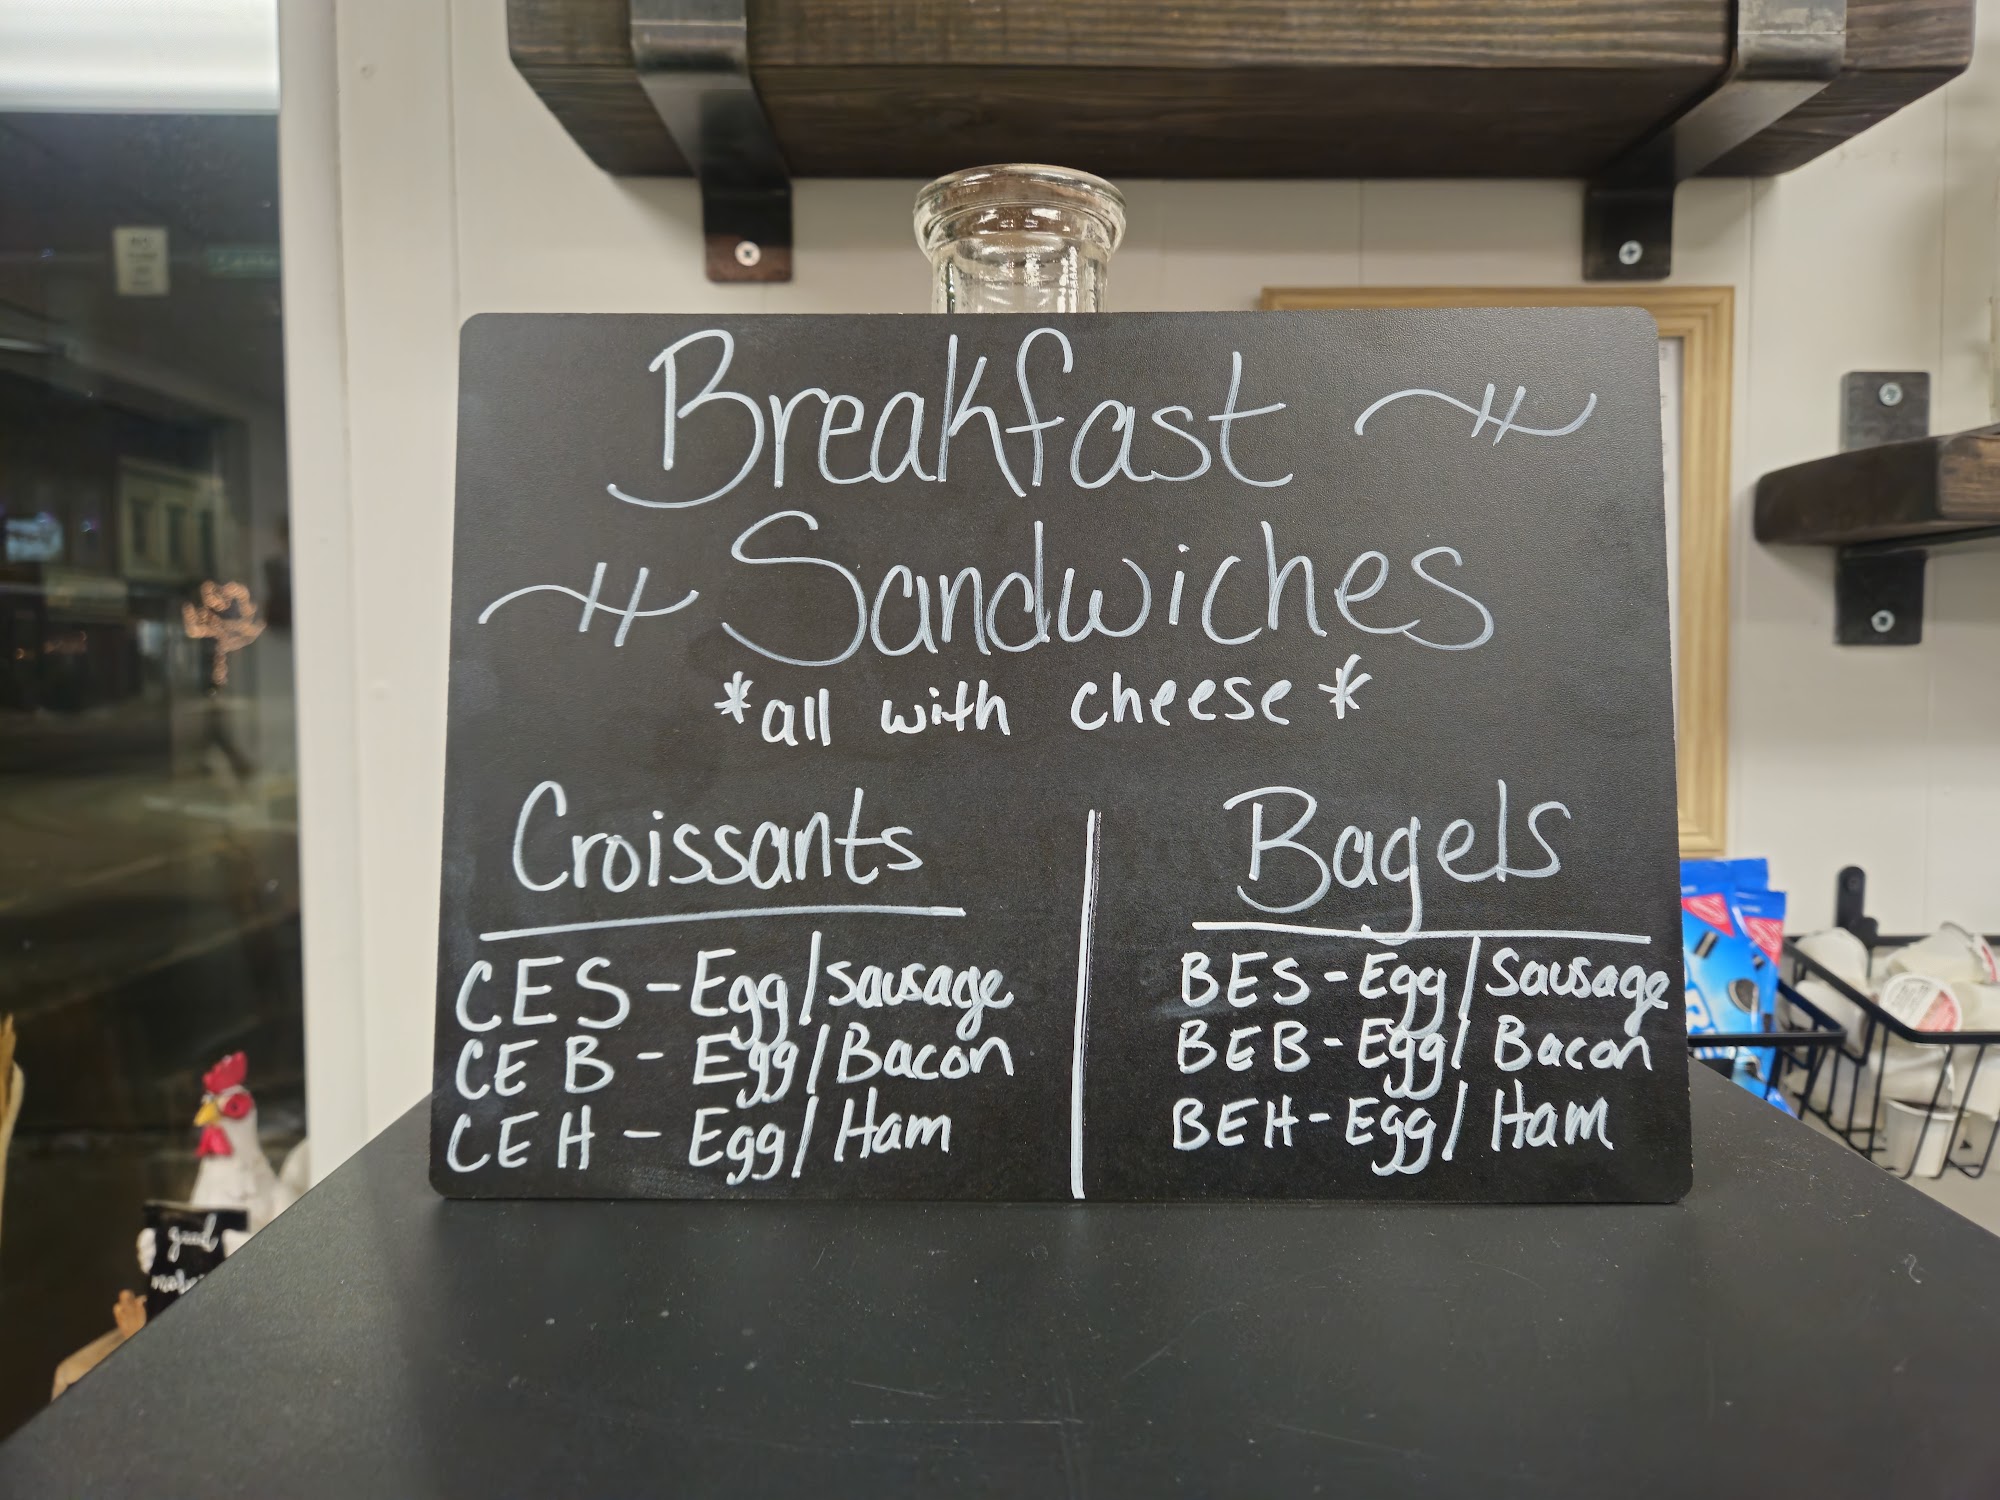 Breakfast
Sandwiches
*all with cheese*
Croissants
CES - Egg/Sausage
CEB - Egg/Bacon
CEH - Egg/Ham
Bagels
BES - Egg/Sausage
BEB - Egg/Bacon
BEH - Egg/Ham
good